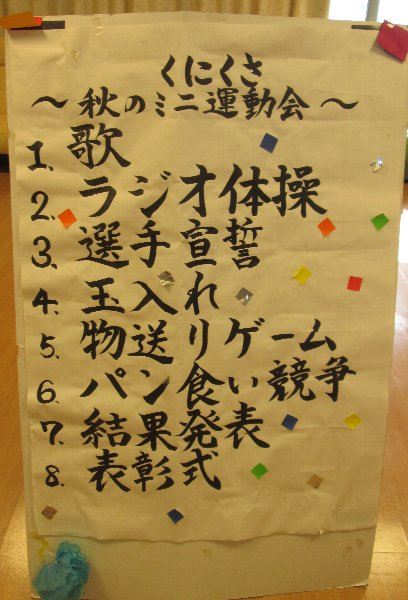 くにくさ
～秋のミニ運動会～
1. 歌
2. ラジオ体操
3. 選手宣誓
4. 玉入れ
5. 物送りゲーム
6. パン食い競争
7. 結果発表
8. 表彰式